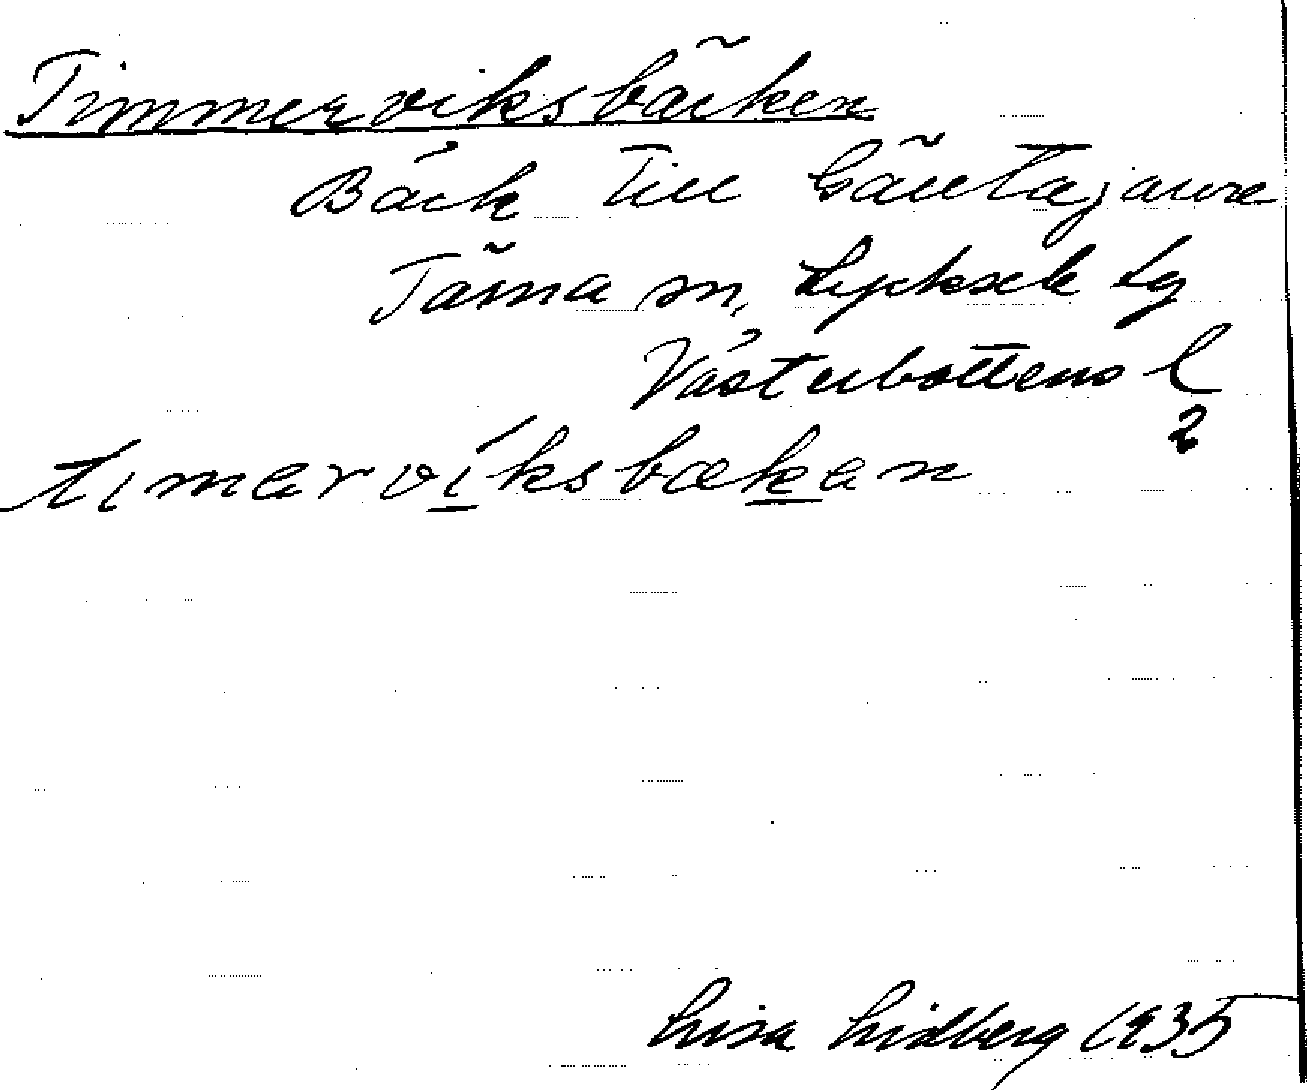 Timmerviksbäcken
Bäck till Gäutajaure
Tärna sn, Lycksele lg
Västerbottens l
2
timərvíksbækən
Lisa Lidberg 1935